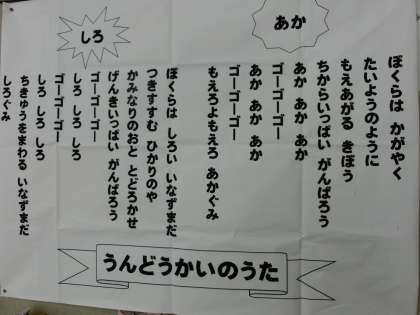 うんどうかいのうた
あか
ぼくらは かがやく
たいようのように
もえあがる きぼう
ちからいっぱい がんばろう
あか あか あか
ゴーゴーゴー
あか あか あか
ゴーゴーゴー
もえろよもえろ あかぐみ
しろ
ぼくらは しろい いなずまだ
つきすすむ ひかりのや
かみなりのおと とどろかせ
げんきいっぱい がんばろう
ゴーゴーゴー
しろ しろ しろ
ゴーゴーゴー
しろ しろ しろ
ちきゅうをまわる いなずまだ
しろぐみ